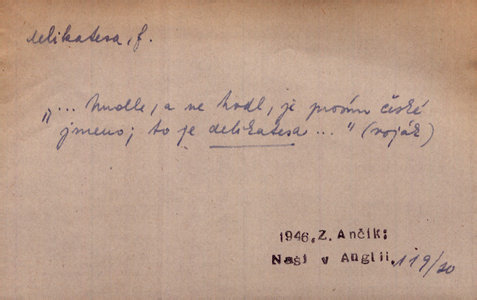 delikatesa, f.
„... hudle, a ne hodl, je prosím české
jmeno; to je delikatesa ..." (voják)
1946, Z. Ančik:
Naši v Anglii, 119/20